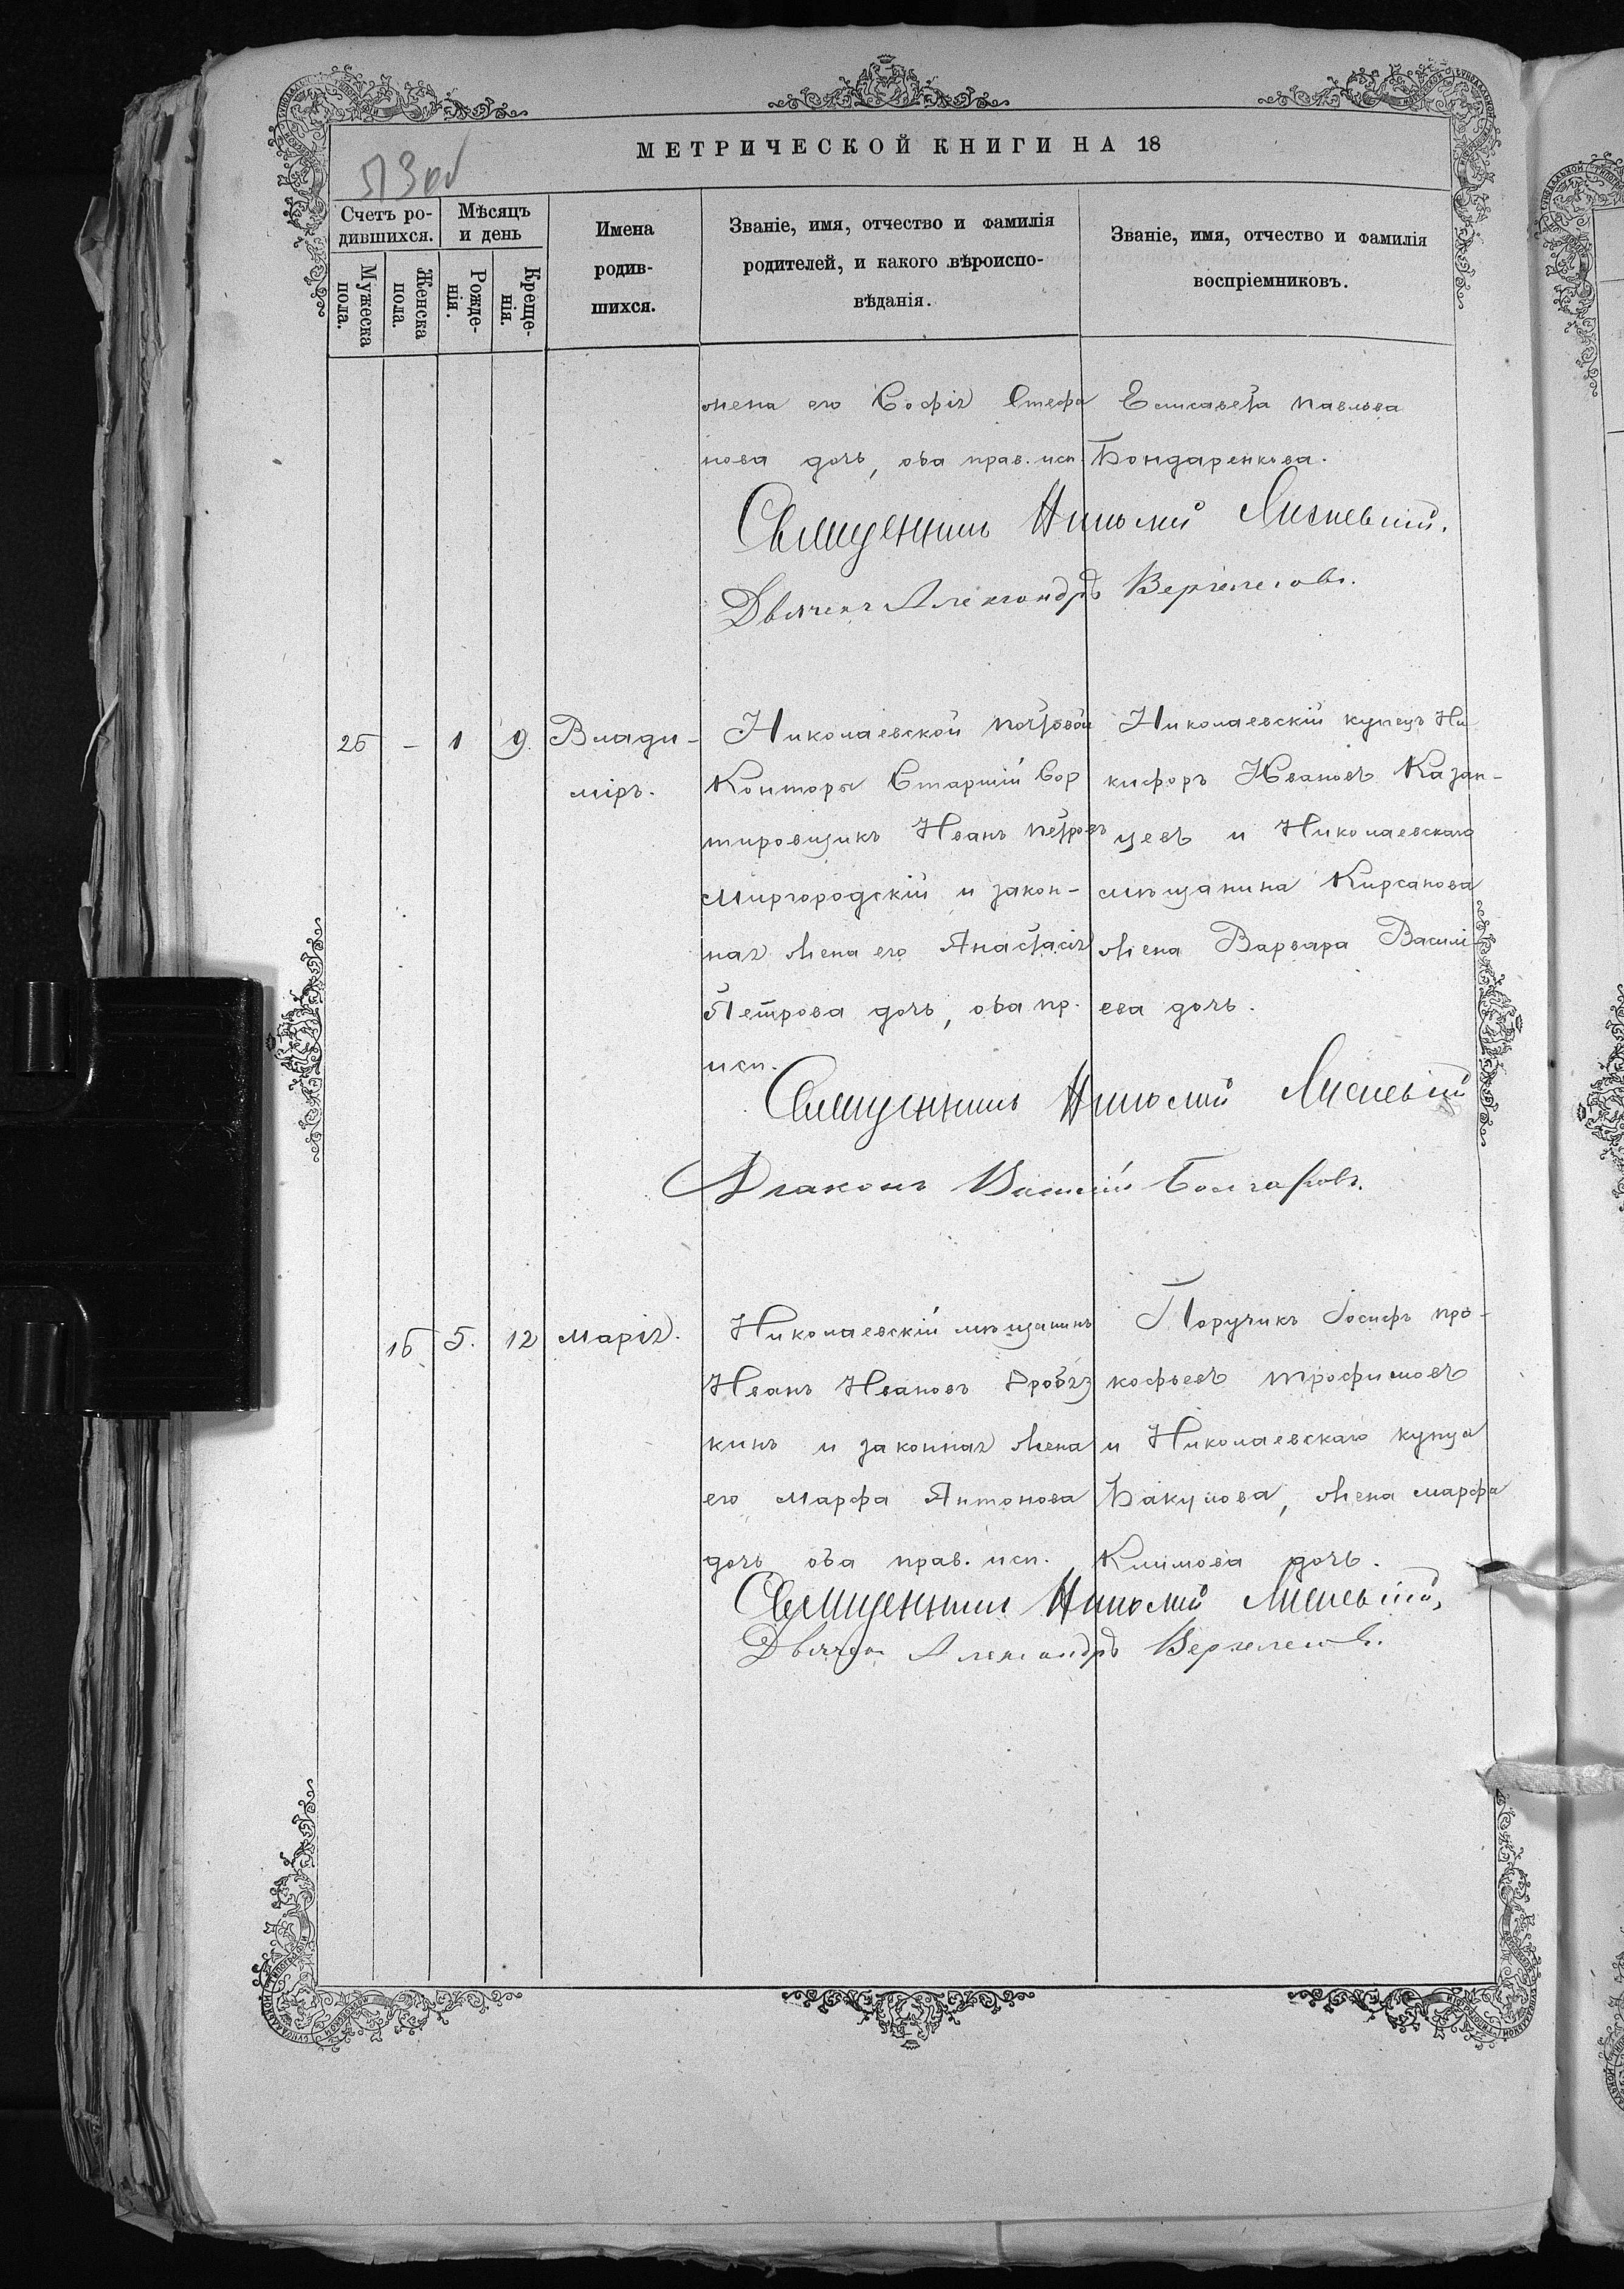 МЕТРИЧЕСКОЙ КНИГИ НА 18
Счетъ ро-
дившихся.
Мужеска
пола.
Женска
пола.
Мѣсяцъ
и день
Рожде-
нія.
Креще-
нія.
Имена
родив-
шихся.
Званіе, имя, отчество и фамилія
родителей, и какого вѣроиспо-
вѣданія.
Званіе, имя, отчество и фамилія
воспріемниковъ.
жена его Софія Стефа
нова дочь, оба прав. исп.
Елисавета Павлова
Бондаренкова.
Священникъ Николай
Александръ
25 – 1 9. Влади-
міръ.
Николаевской Почтовой
Конторы Старшій Сор
тировщикъ Иванъ Петровъ
Миргородскій и закон-
ная жена его Анастасія
Петрова дочь, оба пр.
исп.
Николаевскій купецъ Ни
кифоръ Ивановъ Казан-
цевъ и Николаевскаго
мѣщанина Кирсанова
жена Варвара Василі-
ева дочь.
Священникъ Николай
Діаконъ Василій Болгаровъ.
16 5. 12 Марія.
Николаевскій мѣщанинъ
Иванъ Ивановъ Дробяз
кинъ и законная жена
его Марфа Антонова
дочь оба прав. исп.
Поручикъ Іосифъ Про-
кофьевъ Трофимовъ
и Николаевскаго купца
Бакулова, жена Марфа
Климова дочь.
Священникъ Николай
Александръ